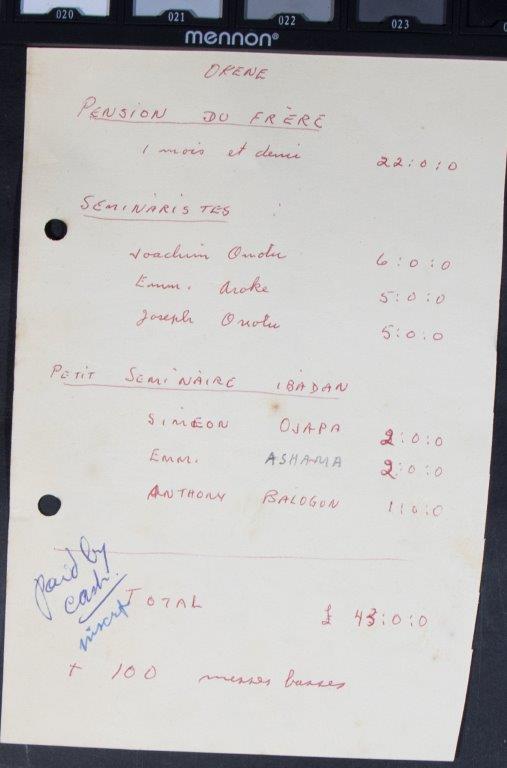 020 021 022 023
mennon®
ORENE
PENSION DU FRÈRE
1 mois et demi 22:0:0
SEMINARISTES
Joachim Onotu 6:0:0
Emm. Aroke 5:0:0
Joseph Onotu 5:0:0
PETIT SEMINAIRE IBADAN
SIMEON OJAPA 2:0:0
EMM. ASHAMA 2:0:0
ANTHONY BALOGON 1:0:0
paid by
cash.
TOTAL £ 43:0:0
+ 100 messes basses